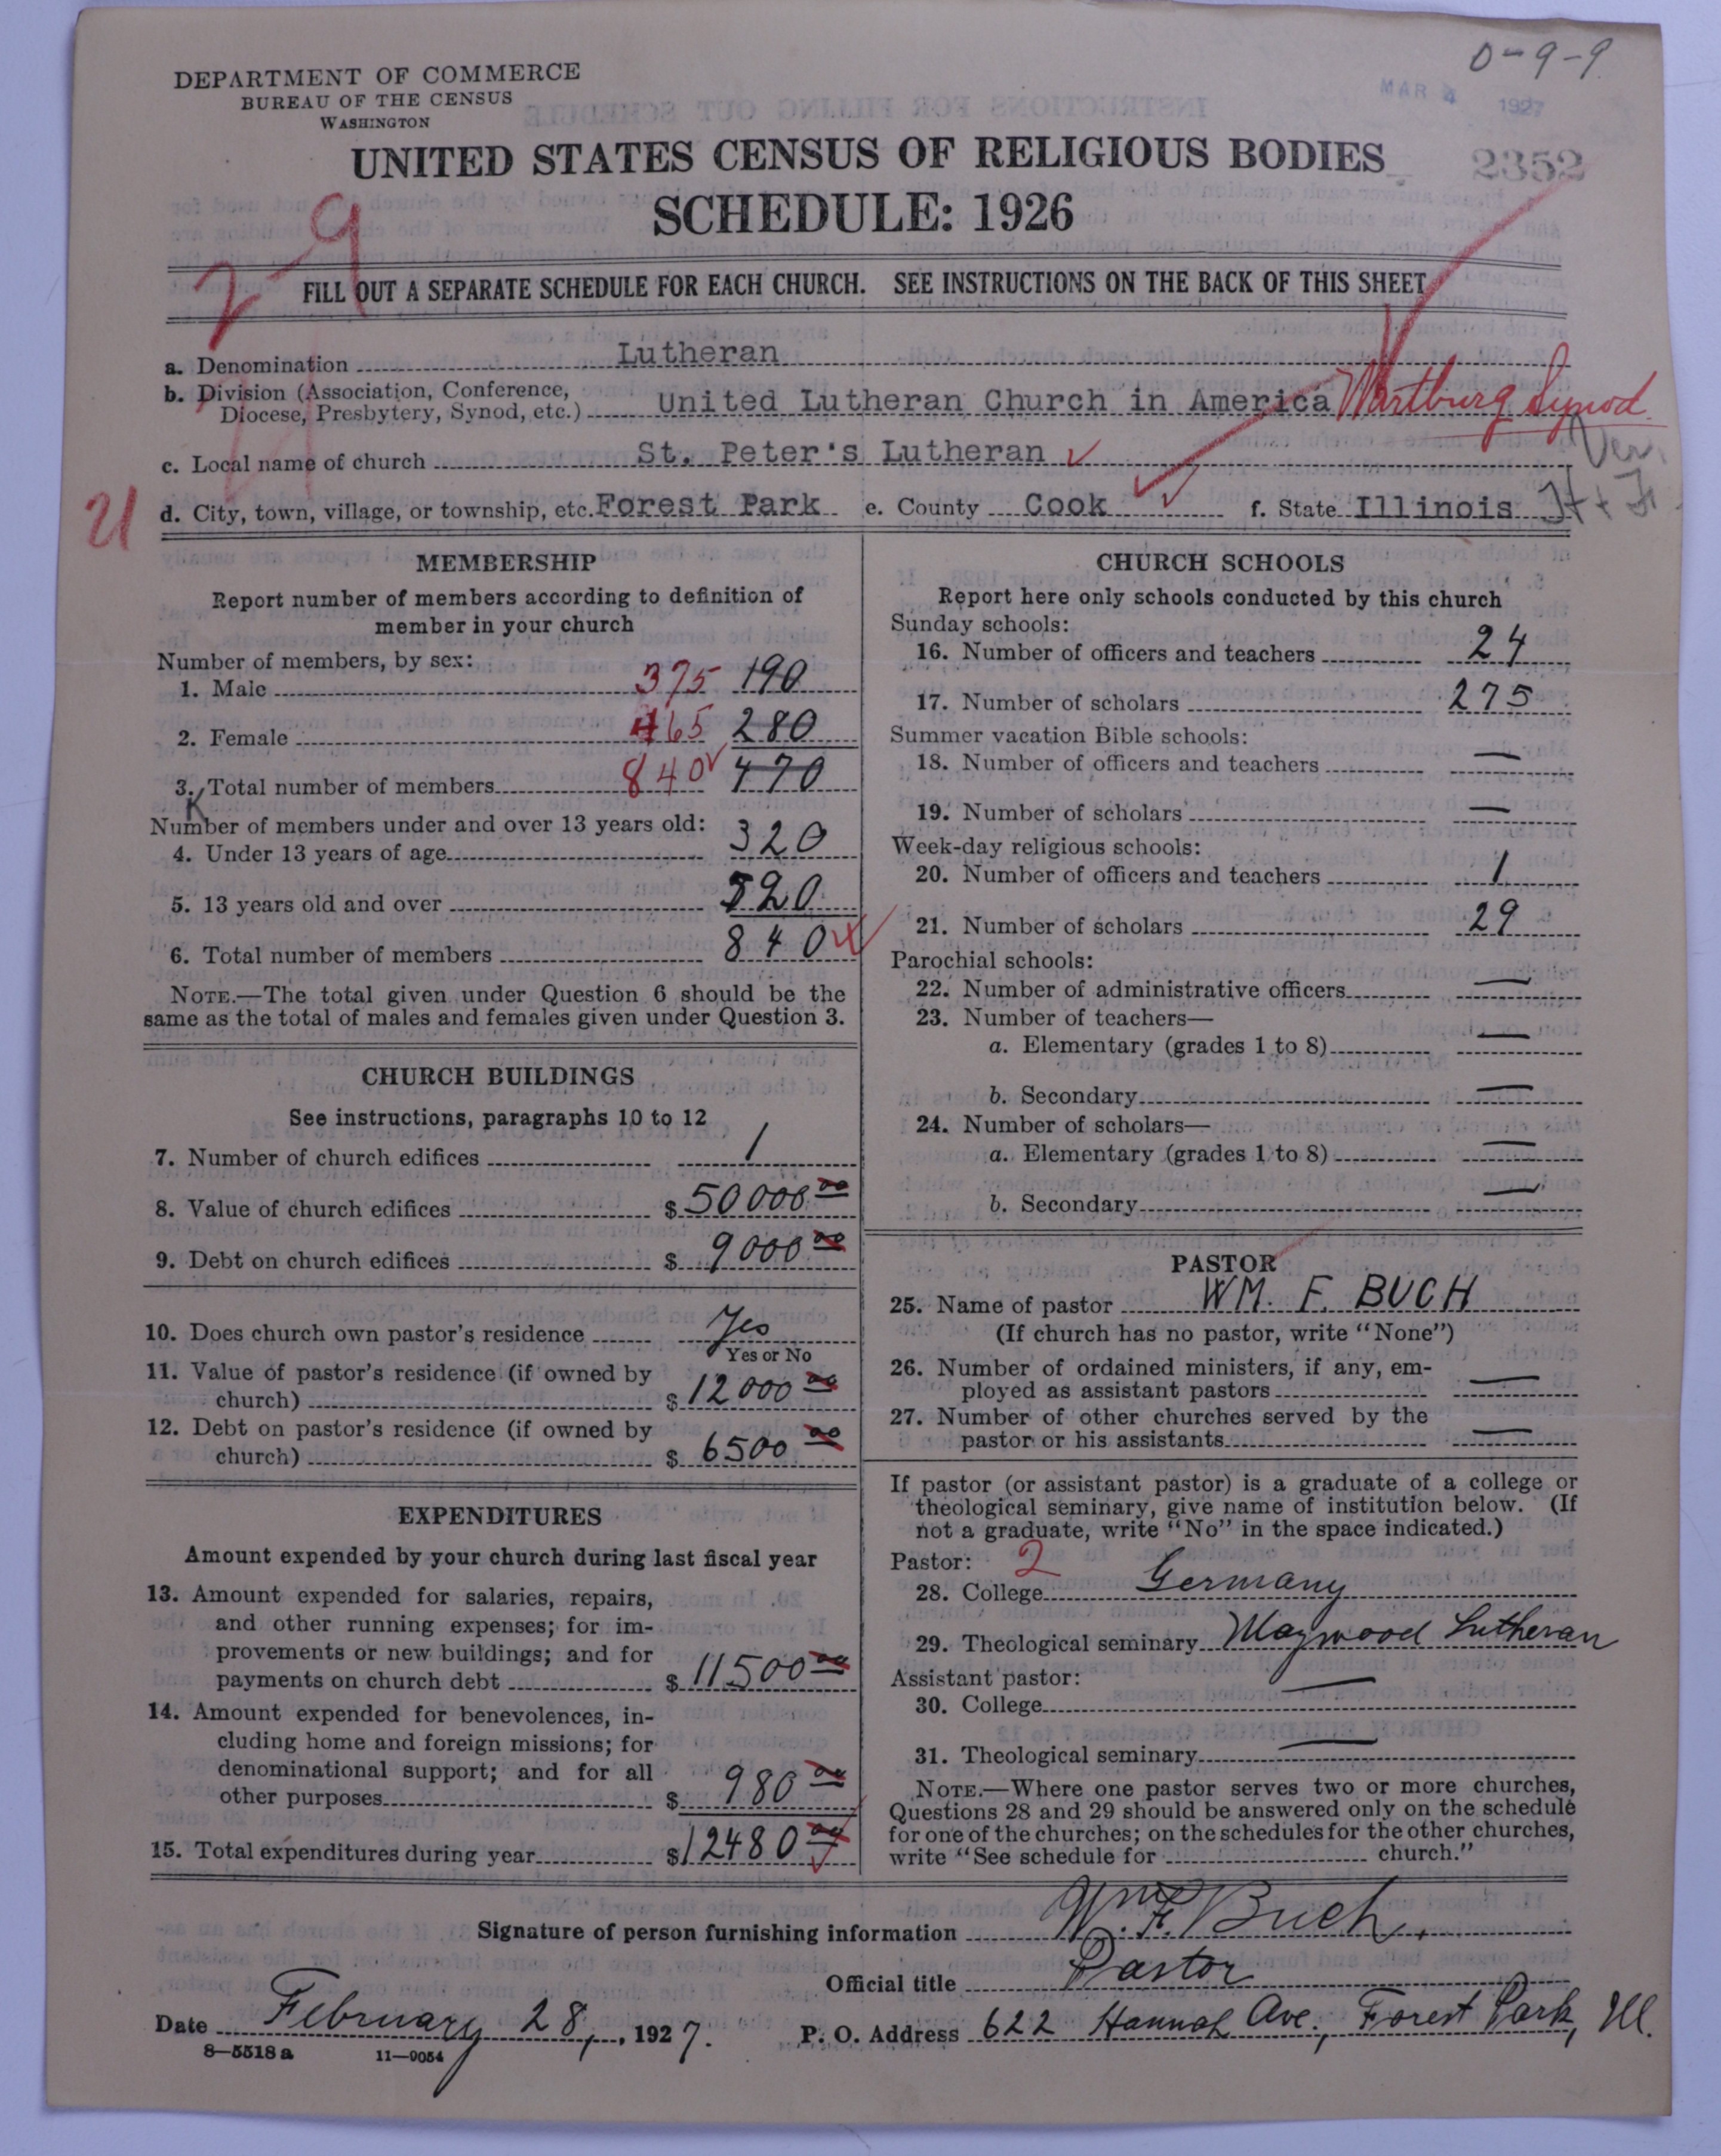 0-9-9
DEPARTMENT OF COMMERCE
BUREAU OF THE CENSUS
WASHINGTON
MAR 4 1927
UNITED STATES CENSUS OF RELIGIOUS BODIES
2352
SCHEDULE: 1926
2-9
FILL OUT A SEPARATE SCHEDULE FOR EACH CHURCH. SEE INSTRUCTIONS ON THE BACK OF THIS SHEET
a. Denomination Lutheran
b. Division (Association, Conference, Diocese, Presbytery, Synod, etc.) United Lutheran Church in America Wartburg Synod
c. Local name of church St. Peter's Lutheran
Ver.
21
d. City, town, village, or township, etc. Forest Park e. County Cook f. State Illinois
MEMBERSHIP
Report number of members according to definition of
member in your church
Number of members, by sex:
1. Male 375 190
2. Female 465 280
3. Total number of members 840 470
K
Number of members under and over 13 years old:
4. Under 13 years of age 320
5. 13 years old and over 520
6. Total number of members 840
NOTE.—The total given under Question 6 should be the
same as the total of males and females given under Question 3.
CHURCH BUILDINGS
See instructions, paragraphs 10 to 12
7. Number of church edifices 1
8. Value of church edifices $ 50000.00
9. Debt on church edifices $ 9000 00
10. Does church own pastor's residence Yes
Yes or No
11. Value of pastor's residence (if owned by
church) $ 12000 00
12. Debt on pastor's residence (if owned by
church) $ 6500 00
EXPENDITURES
Amount expended by your church during last fiscal year
13. Amount expended for salaries, repairs,
and other running expenses; for im-
provements or new buildings; and for
payments on church debt $ 11500 00
14. Amount expended for benevolences, in-
cluding home and foreign missions; for
denominational support; and for all
other purposes $ 980 00
15. Total expenditures during year $12480 00
CHURCH SCHOOLS
Report here only schools conducted by this church
Sunday schools:
16. Number of officers and teachers 24
17. Number of scholars 275
Summer vacation Bible schools:
18. Number of officers and teachers —
19. Number of scholars —
Week-day religious schools:
20. Number of officers and teachers 1
21. Number of scholars 29
Parochial schools:
22. Number of administrative officers —
23. Number of teachers—
a. Elementary (grades 1 to 8) —
b. Secondary —
24. Number of scholars—
a. Elementary (grades 1 to 8) —
b. Secondary —
PASTOR
25. Name of pastor WM. F. BUCH
(If church has no pastor, write "None")
26. Number of ordained ministers, if any, em-
ployed as assistant pastors —
27. Number of other churches served by the
pastor or his assistants —
If pastor (or assistant pastor) is a graduate of a college or
theological seminary, give name of institution below. (If
not a graduate, write "No" in the space indicated.)
Pastor: 2
28. College Germany
29. Theological seminary Maywood Lutheran
Assistant pastor:
30. College —
31. Theological seminary —
NOTE.—Where one pastor serves two or more churches,
Questions 28 and 29 should be answered only on the schedule
for one of the churches; on the schedules for the other churches,
write "See schedule for church."
Signature of person furnishing information Wm. F. Buch.
Official title Pastor
Date February 28, , 1927. P. O. Address 622 Hannah Ave., Forest Park, Ill.
8—5518 a 11—9054